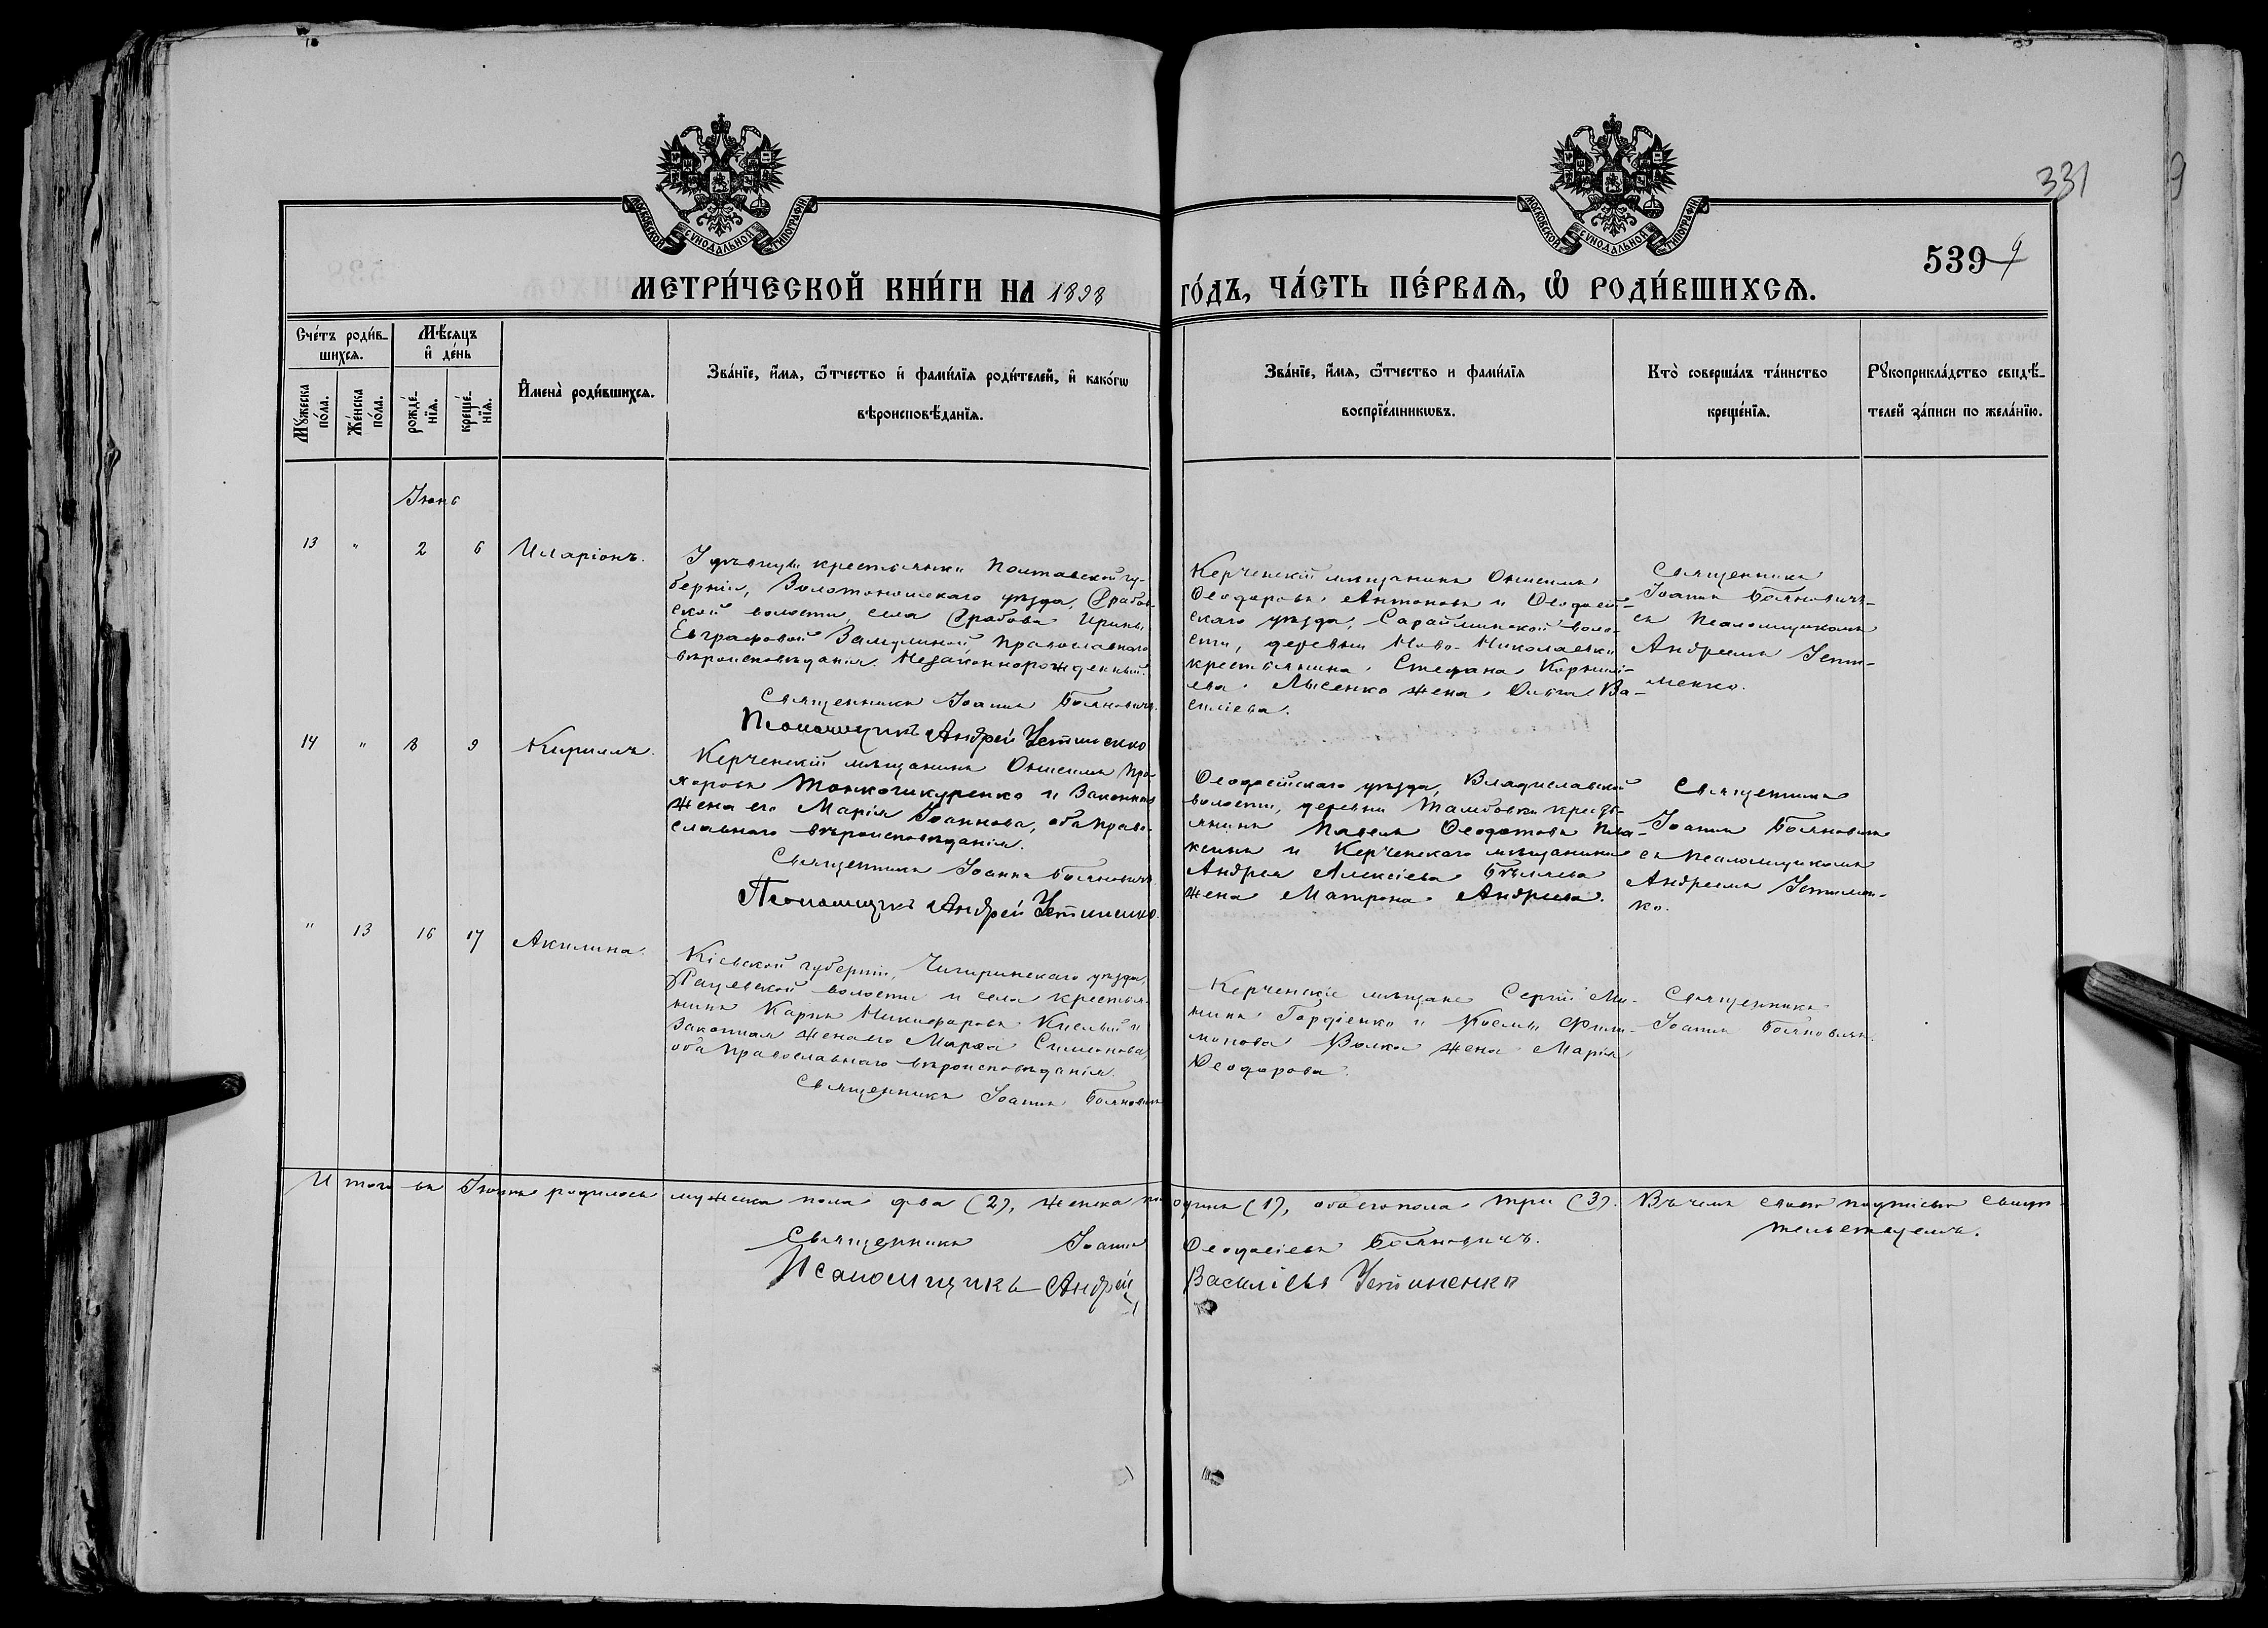 МОСКОВСКОЙ СУНОДАЛЬНОЙ ТИПОГРАФІИ
МОСКОВСКОЙ СУНОДАЛЬНОЙ ТИПОГРАФІИ
331
539
9
МЕТРИ́ЧЕСКОЙ КНИ́ГИ НА 1898 ГО́ДЪ, ЧА́СТЬ ПЕ́РВАѦ, Ѡ РОДИ́ВШИХСѦ.
Сче́тъ роди́в-
шихсѧ.
Мꙋ́жеска по́ла.
Же́нска по́ла.
Мѣ́сѧцъ
и҆ де́нь
рожде́-
нїѧ.
креще́-
нїѧ.
И҆мена̀ роди́вшихсѧ.
Зва́нїе, и҆́мѧ, ѻ҆́тчество и҆ фами́лїѧ роди́телей, и҆ како́гѡ
вѣроисповѣ́данїѧ.
Зва́нїе, и҆́мѧ, ѻ҆́тчество и фами́лїѧ
воспрїе́мникѡвъ.
Кто̀ соверша́лъ та́инство
креще́нїѧ.
Рꙋкоприкла́дство свидѣ́-
телей за́писи по жела́нїю.
Іюнь
13 " 2 6 Иларіонъ.
У дѣвицы крестьянки Полтавской гу-
берніи, Золотоношскаго уѣзда, Драбов-
ской волости, села Драбова Ирины
Евграфовой Замулиной, православнаго
вѣроисповѣданія. Незаконнорожденный.
Священникъ Іоаннъ Бояновичъ.
Псаломщикъ Андрей Устименко
Керченскій мѣщанинъ Онисимъ
Ѳеодоровъ Антоновъ и Ѳеодосій-
скаго уѣзда, Сарайминской воло-
сти, деревни Ново-Николаевки
крестьянина Стефана Корнилі-
ева Лысенко жена Ольга Ва-
силіева.
Священникъ
Іоаннъ Бояновичъ
съ псаломщикомъ
Андреемъ Усти-
менко.
14 " 8 9 Кириллъ.
Керченскій мѣщанинъ Онисимъ Про-
хоровъ Тонкошкуренко и законная
жена его Марія Іоаннова, оба право-
славнаго вѣроисповѣданія.
Священникъ Іоаннъ Бояновичъ
Псаломщикъ Андрей Устименко.
Ѳеодосійскаго уѣзда, Владиславской
волости, деревни Тамбовки кресть-
янинъ Павелъ Ѳеодотовъ Пла-
ксинъ и Керченскаго мѣщанина
Андрея Алексіева Бѣляева
жена Матрона Андреева.
Священникъ
Іоаннъ Бояновичъ
съ псаломщикомъ
Андреемъ Устимен-
ко.
" 13 16 17 Акилина.
Кіевской губерніи, Чигиринскаго уѣзда,
Рацевской волости и села крестья-
нинъ Карпъ Никифоровъ Кислый и
законная жена его Марѳа Симонова,
оба православнаго вѣроисповѣданія.
Священникъ Іоаннъ Бояновичъ
Керченскіе мѣщане Сергій Ми-
нинъ Гордіенко и Космы Фили-
монова Волка жена Марія
Ѳеодорова.
Священникъ
Іоаннъ Бояновичъ.
Итого въ Іюнѣ родилось мужеска пола два (2), женска по одинъ (1), обоего пола три (3). Въ чемъ своею подписью свидѣ-
тельствуемъ.
Священникъ Іоаннъ Ѳеодосіевъ Бояновичъ.
Псаломщикъ Андрей Василіевъ Устименко